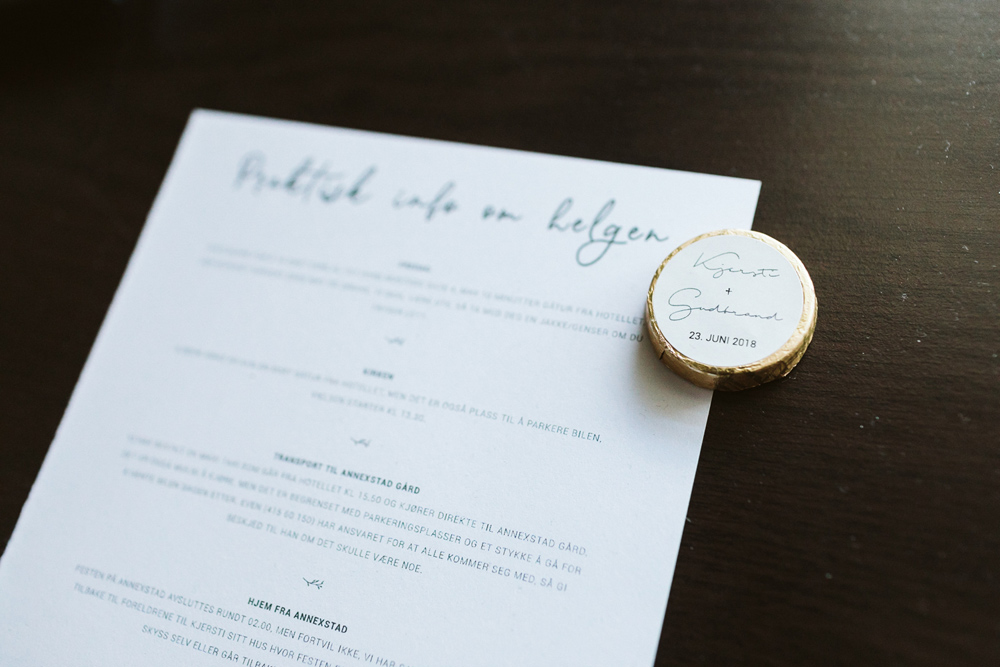 Praktisk info om helgen
MINUTTER GÅTUR FRA HOTELLET
SÅ TA MED DEG EN JAKKE/GENSER OM DU
KIRKEN
GÅTUR FRA HOTELLET, MEN DET ER OGSÅ PLASS TIL Å PARKERE BILEN.
VIELSEN STARTER KL 15.30.
TRANSPORT TIL ANNEXSTAD GÅRD
SOM GÅR FRA HOTELLET KL 15.50 OG KJØRER DIREKTE TIL ANNEXSTAD GÅRD.
Å KJØRE, MEN DET ER BEGRENSET MED PARKERINGSPLASSER OG ET STYKKE Å GÅ FOR
Å HENTE BILEN DAGEN ETTER. EVEN (419 60 150) HAR ANSVARET FOR AT ALLE KOMMER SEG MED, SÅ GI
BESKJED TIL HAN OM DET SKULLE VÆRE NOE.
HJEM FRA ANNEXSTAD
FESTEN PÅ ANNEXSTAD AVSLUTTES RUNDT 02.00, MEN FORTVIL IKKE, VI HAR
TILBAKE TIL FORELDRENE TIL KJERSTI SITT HUS HVOR FESTEN
SKYSS SELV ELLER GÅR
Kjersti
+
Gudbrand
23. JUNI 2018